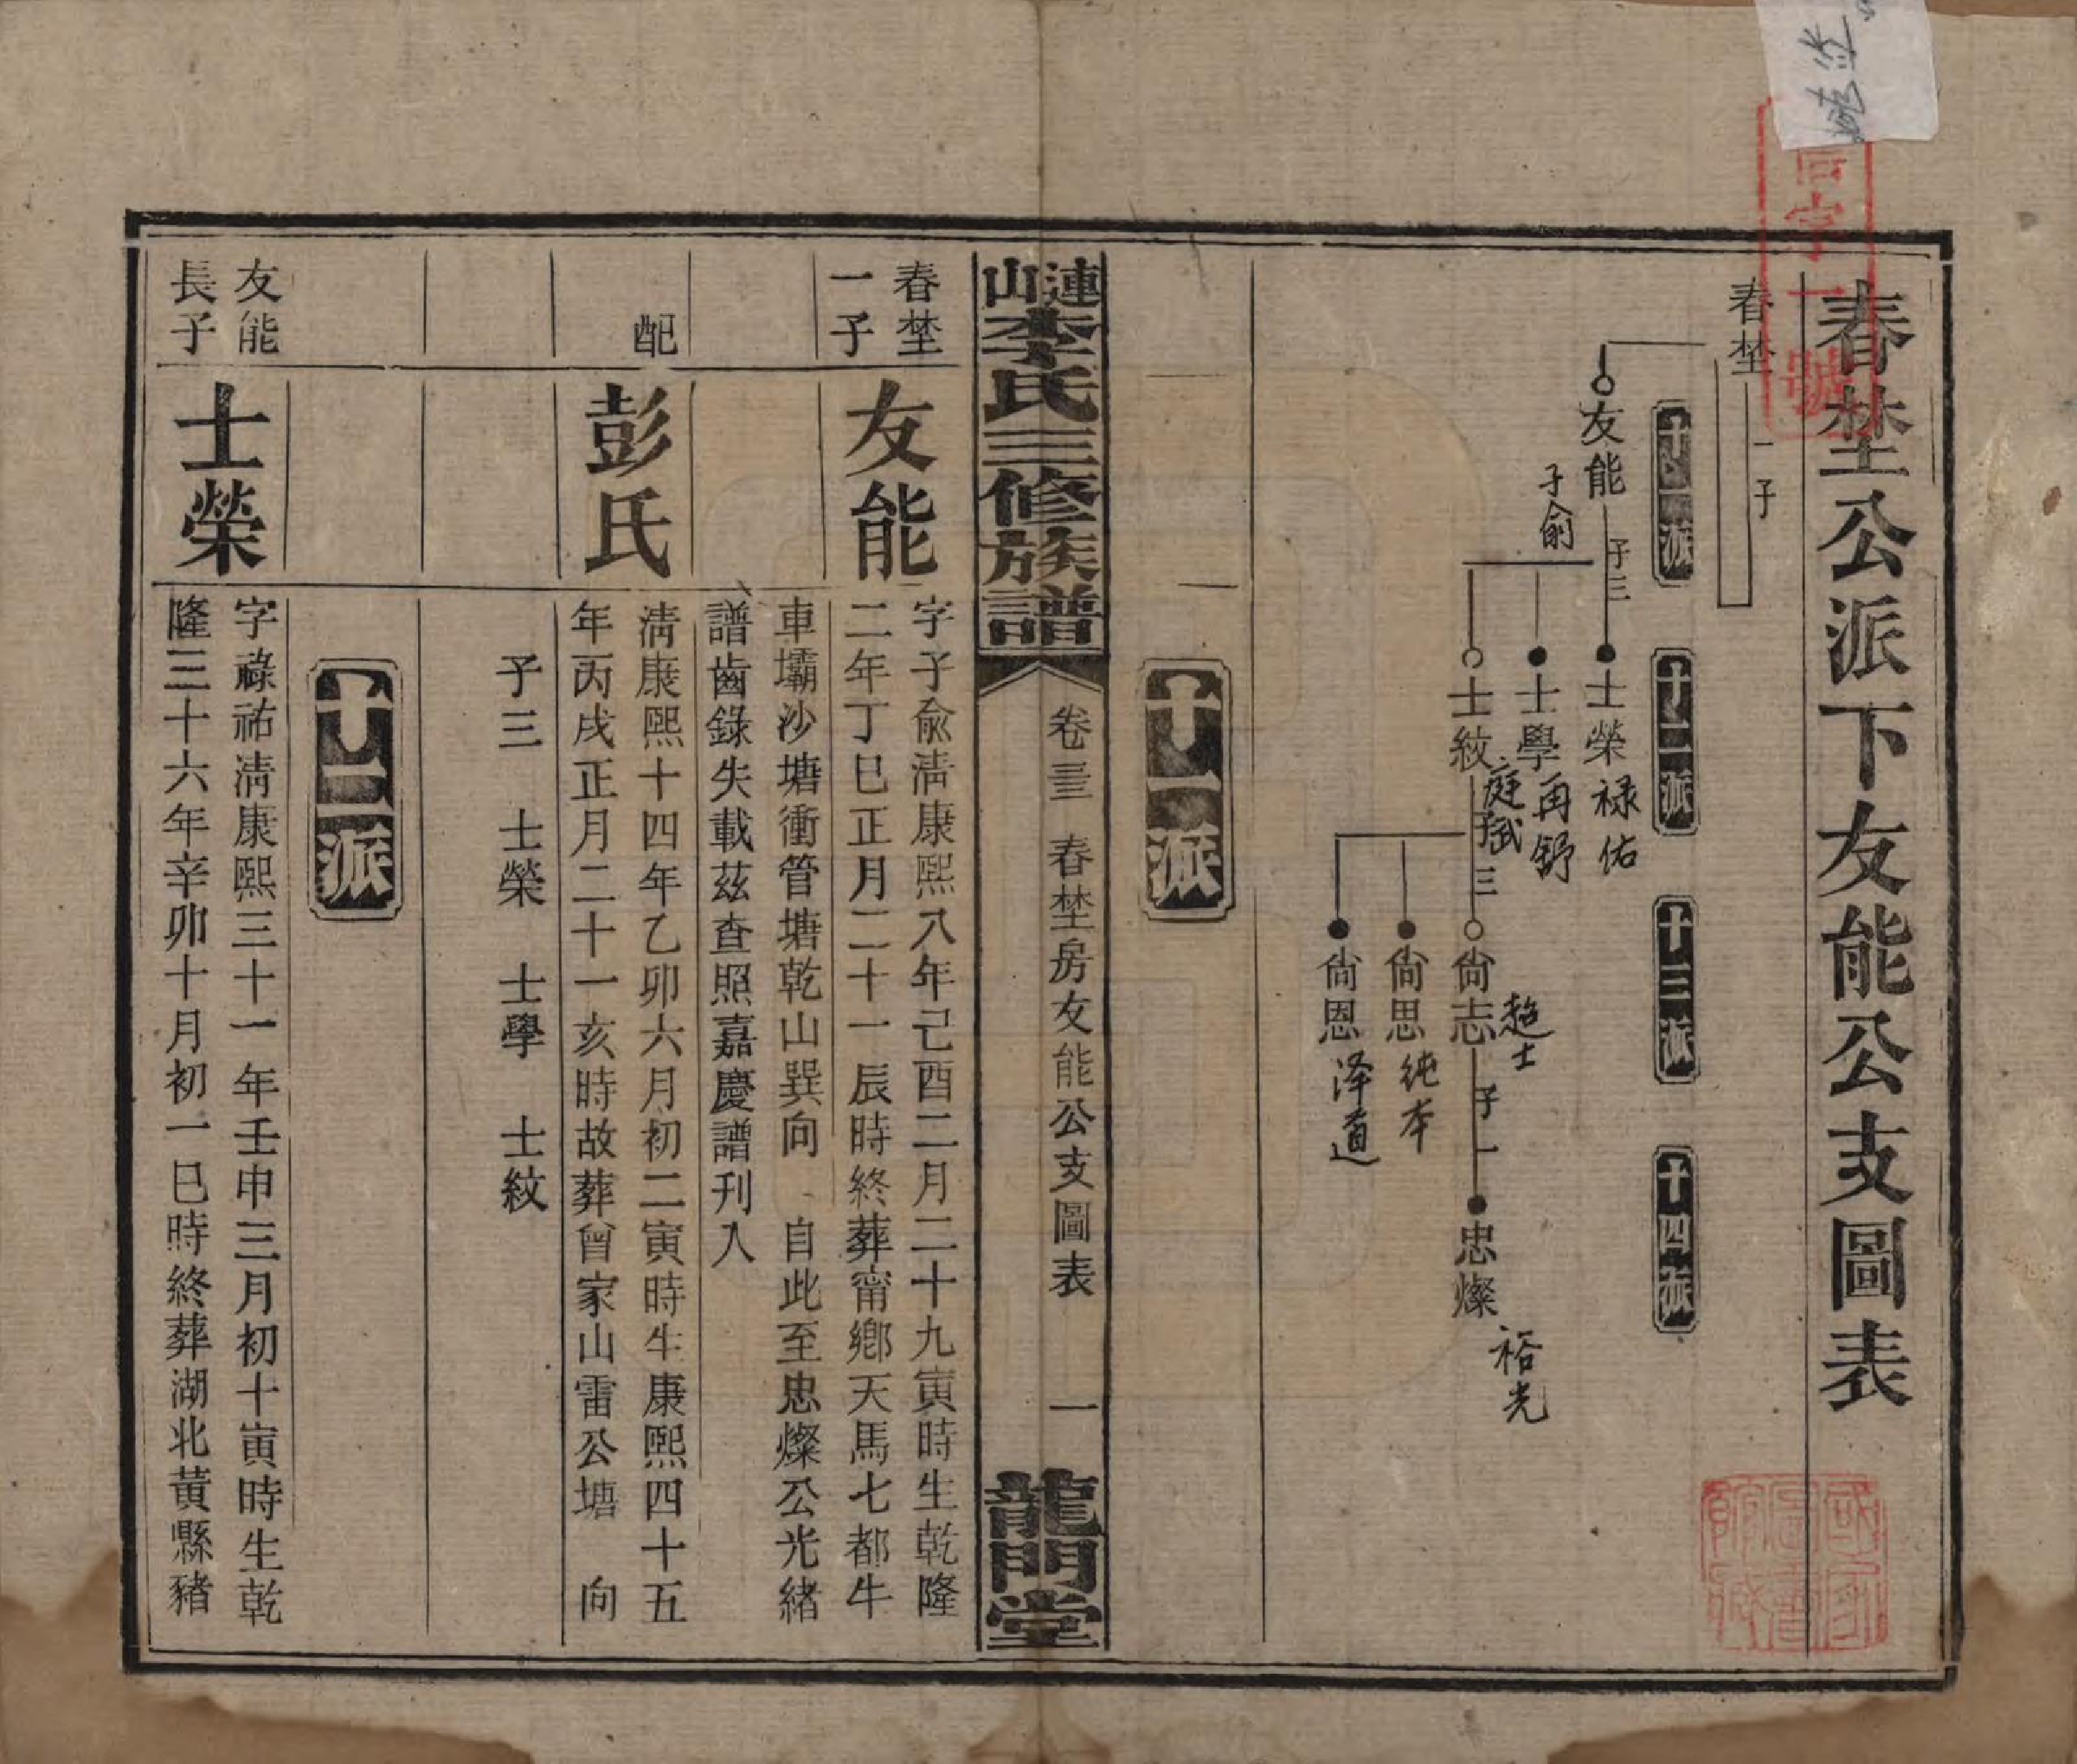 春埜公派下友能公支圖表
春埜
一子
十一派
十二派
十三派
十四派
友能
子俞
子三
士榮
禄佑
士學
再舒
士紋
庭斌
子三
尙志
超士
子一
尙思
纯本
尙恩
泽道
忠燦
裕光
字一號
十一派
連山李氏三修族譜
卷三
春埜房友能公支圖表
一
龍門堂
春埜
一子
友能
字子俞淸康熙八年己酉二月二十九寅時生乾隆
二年丁巳正月二十一辰時終葬甯鄉天馬七都牛
車壩沙塘衝管塘乾山巽向 自此至忠燦公光緒
譜齒錄失載茲查照嘉慶譜刊入
配
彭氏
淸康熙十四年乙卯六月初二寅時生康熙四十五
年丙戌正月二十一亥時故葬曾家山雷公塘 向
子三 士榮 士學 士紋
十二派
友能
長子
士榮
字祿祐淸康熙三十一年壬申三月初十寅時生乾
隆三十六年辛卯十月初一巳時終葬湖北黃縣豬